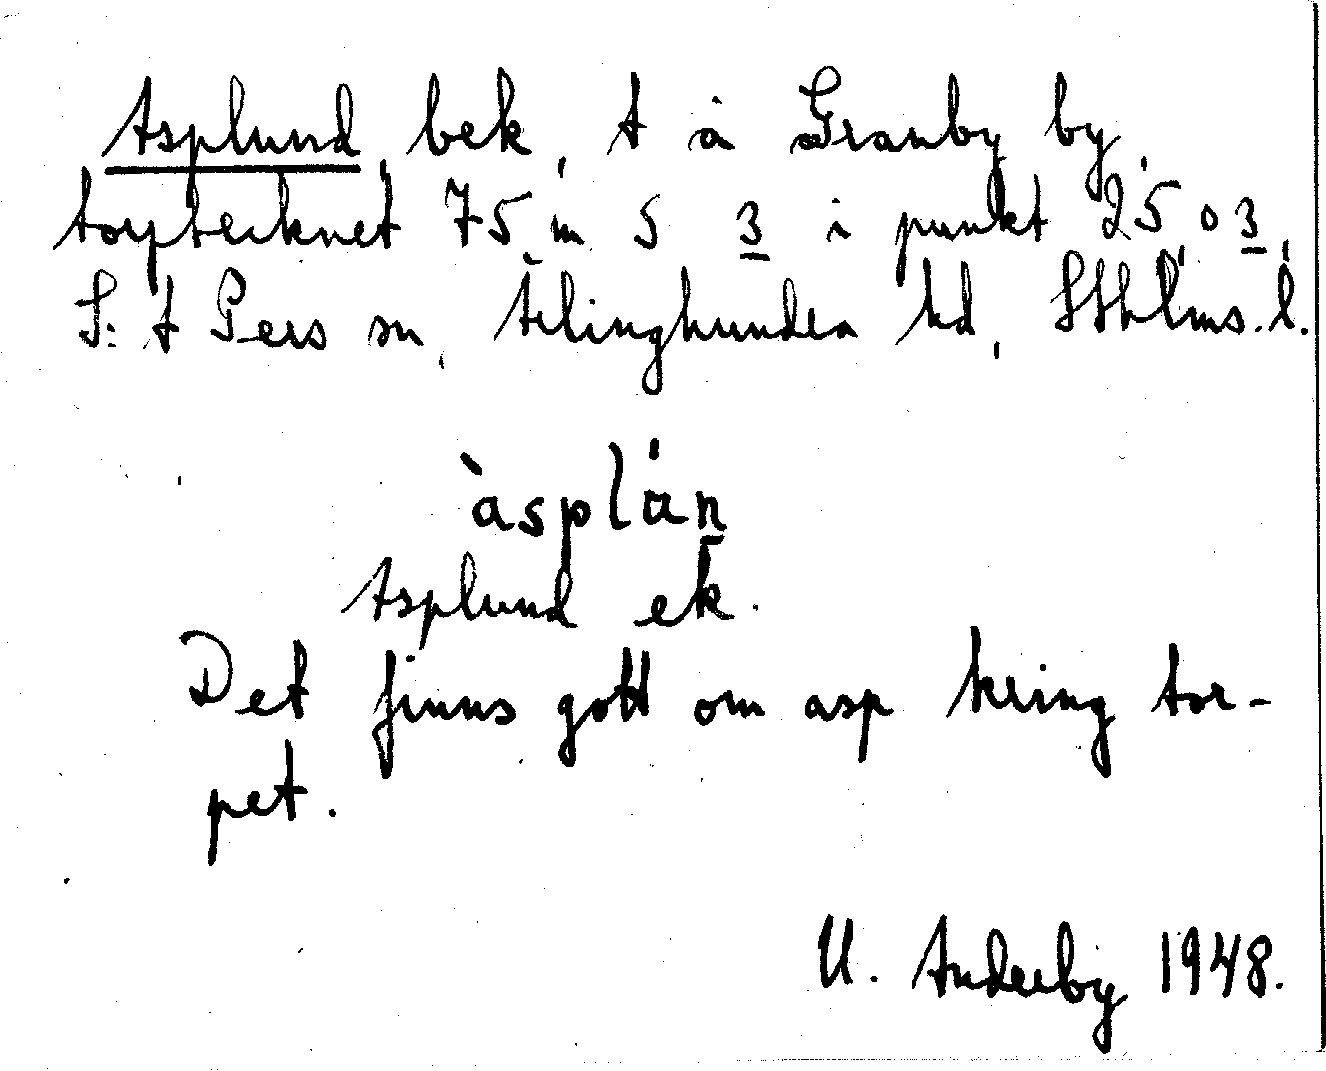 Asplund, bek, t å Granby by,
torptecknet 75 m S 3 i punkt 25 o 3,
S:t Pers sn, Ärlinghundra hd, Sthlms. l.
àsplán
Asplund ek.
Det finns gott om asp kring tor-
pet.
U. Anderby 1948.